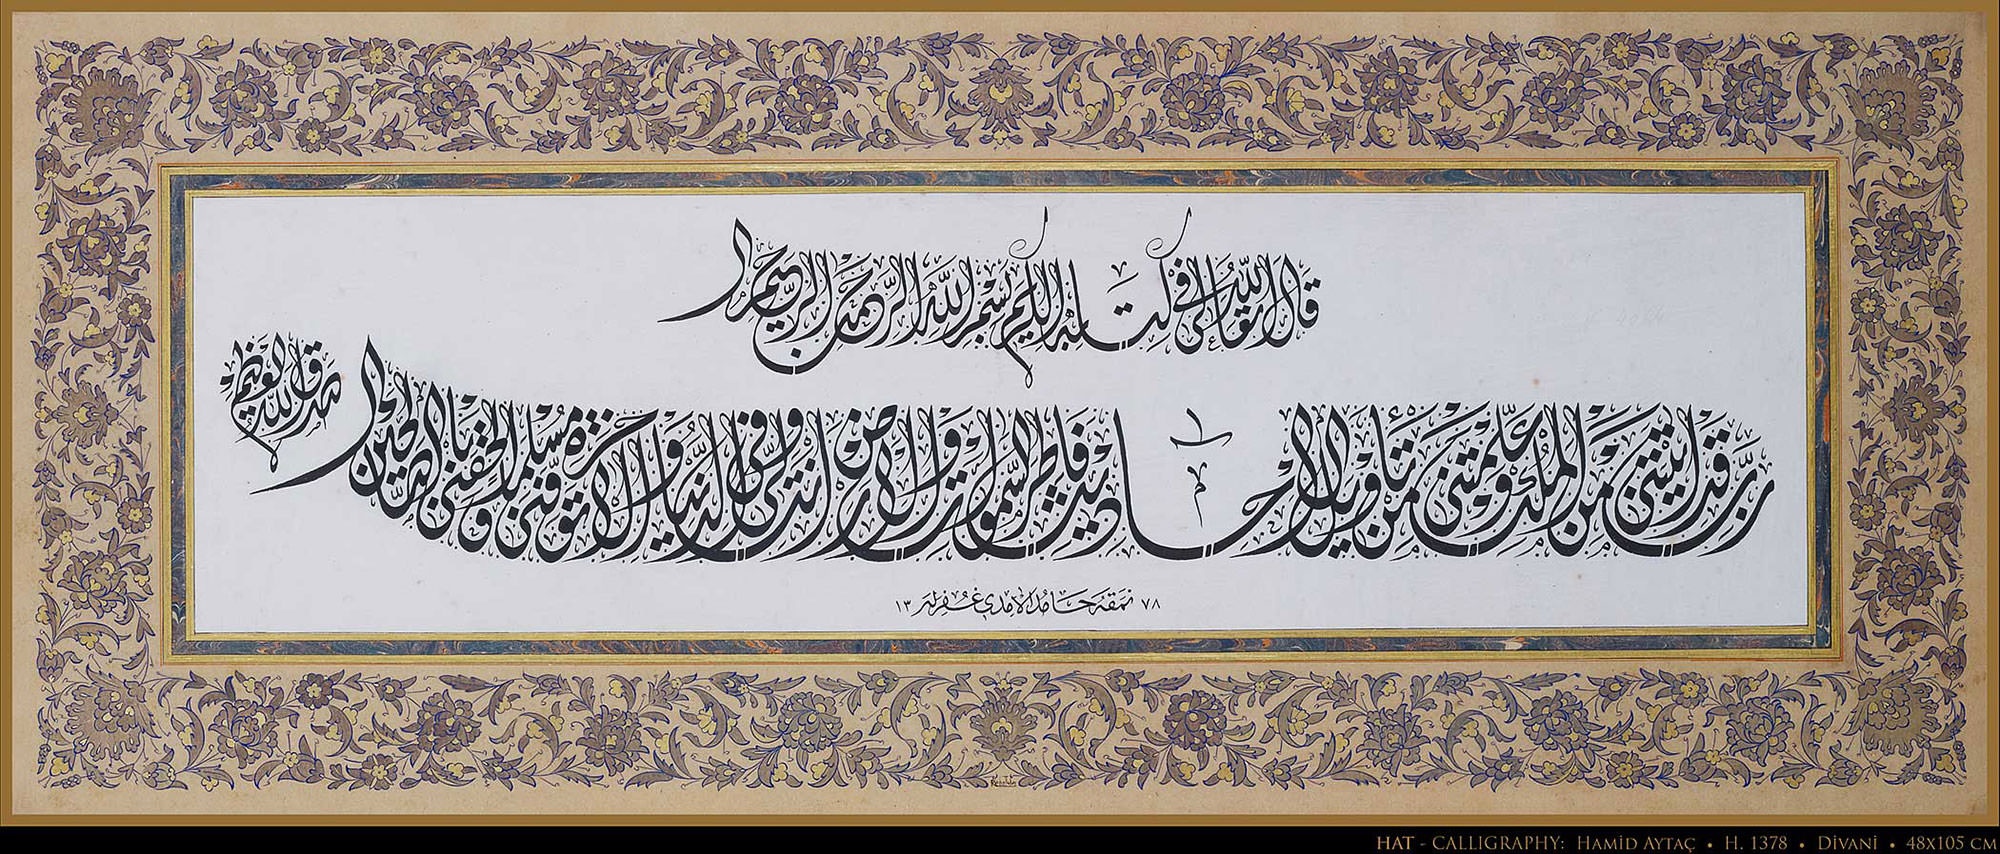 قال الله تعالى في كتابه الكريم بسم الله الرحمن الرحيم
رَبِّ قَدْ آتَيْتَنِي مِنَ الْمُلْكِ وَعَلَّمْتَنِي مِنْ تَأْوِيلِ الْأَحَادِيثِ فَاطِرَ السَّمٰوَاتِ وَالْأَرْضِ أَنْتَ وَلِيِّ فِي الدُّنْيَا وَالْآخِرَةِ تَوَفَّنِي مُسْلِمًا وَأَلْحِقْنِي بِالصَّالِحِينَ
صدق الله العظيم
نمقه حامد الآمدي غفر له ١٣٧٨
HAT - CALLIGRAPHY: HAMİD AYTAÇ • H. 1378 • DİVANİ • 48X105 CM